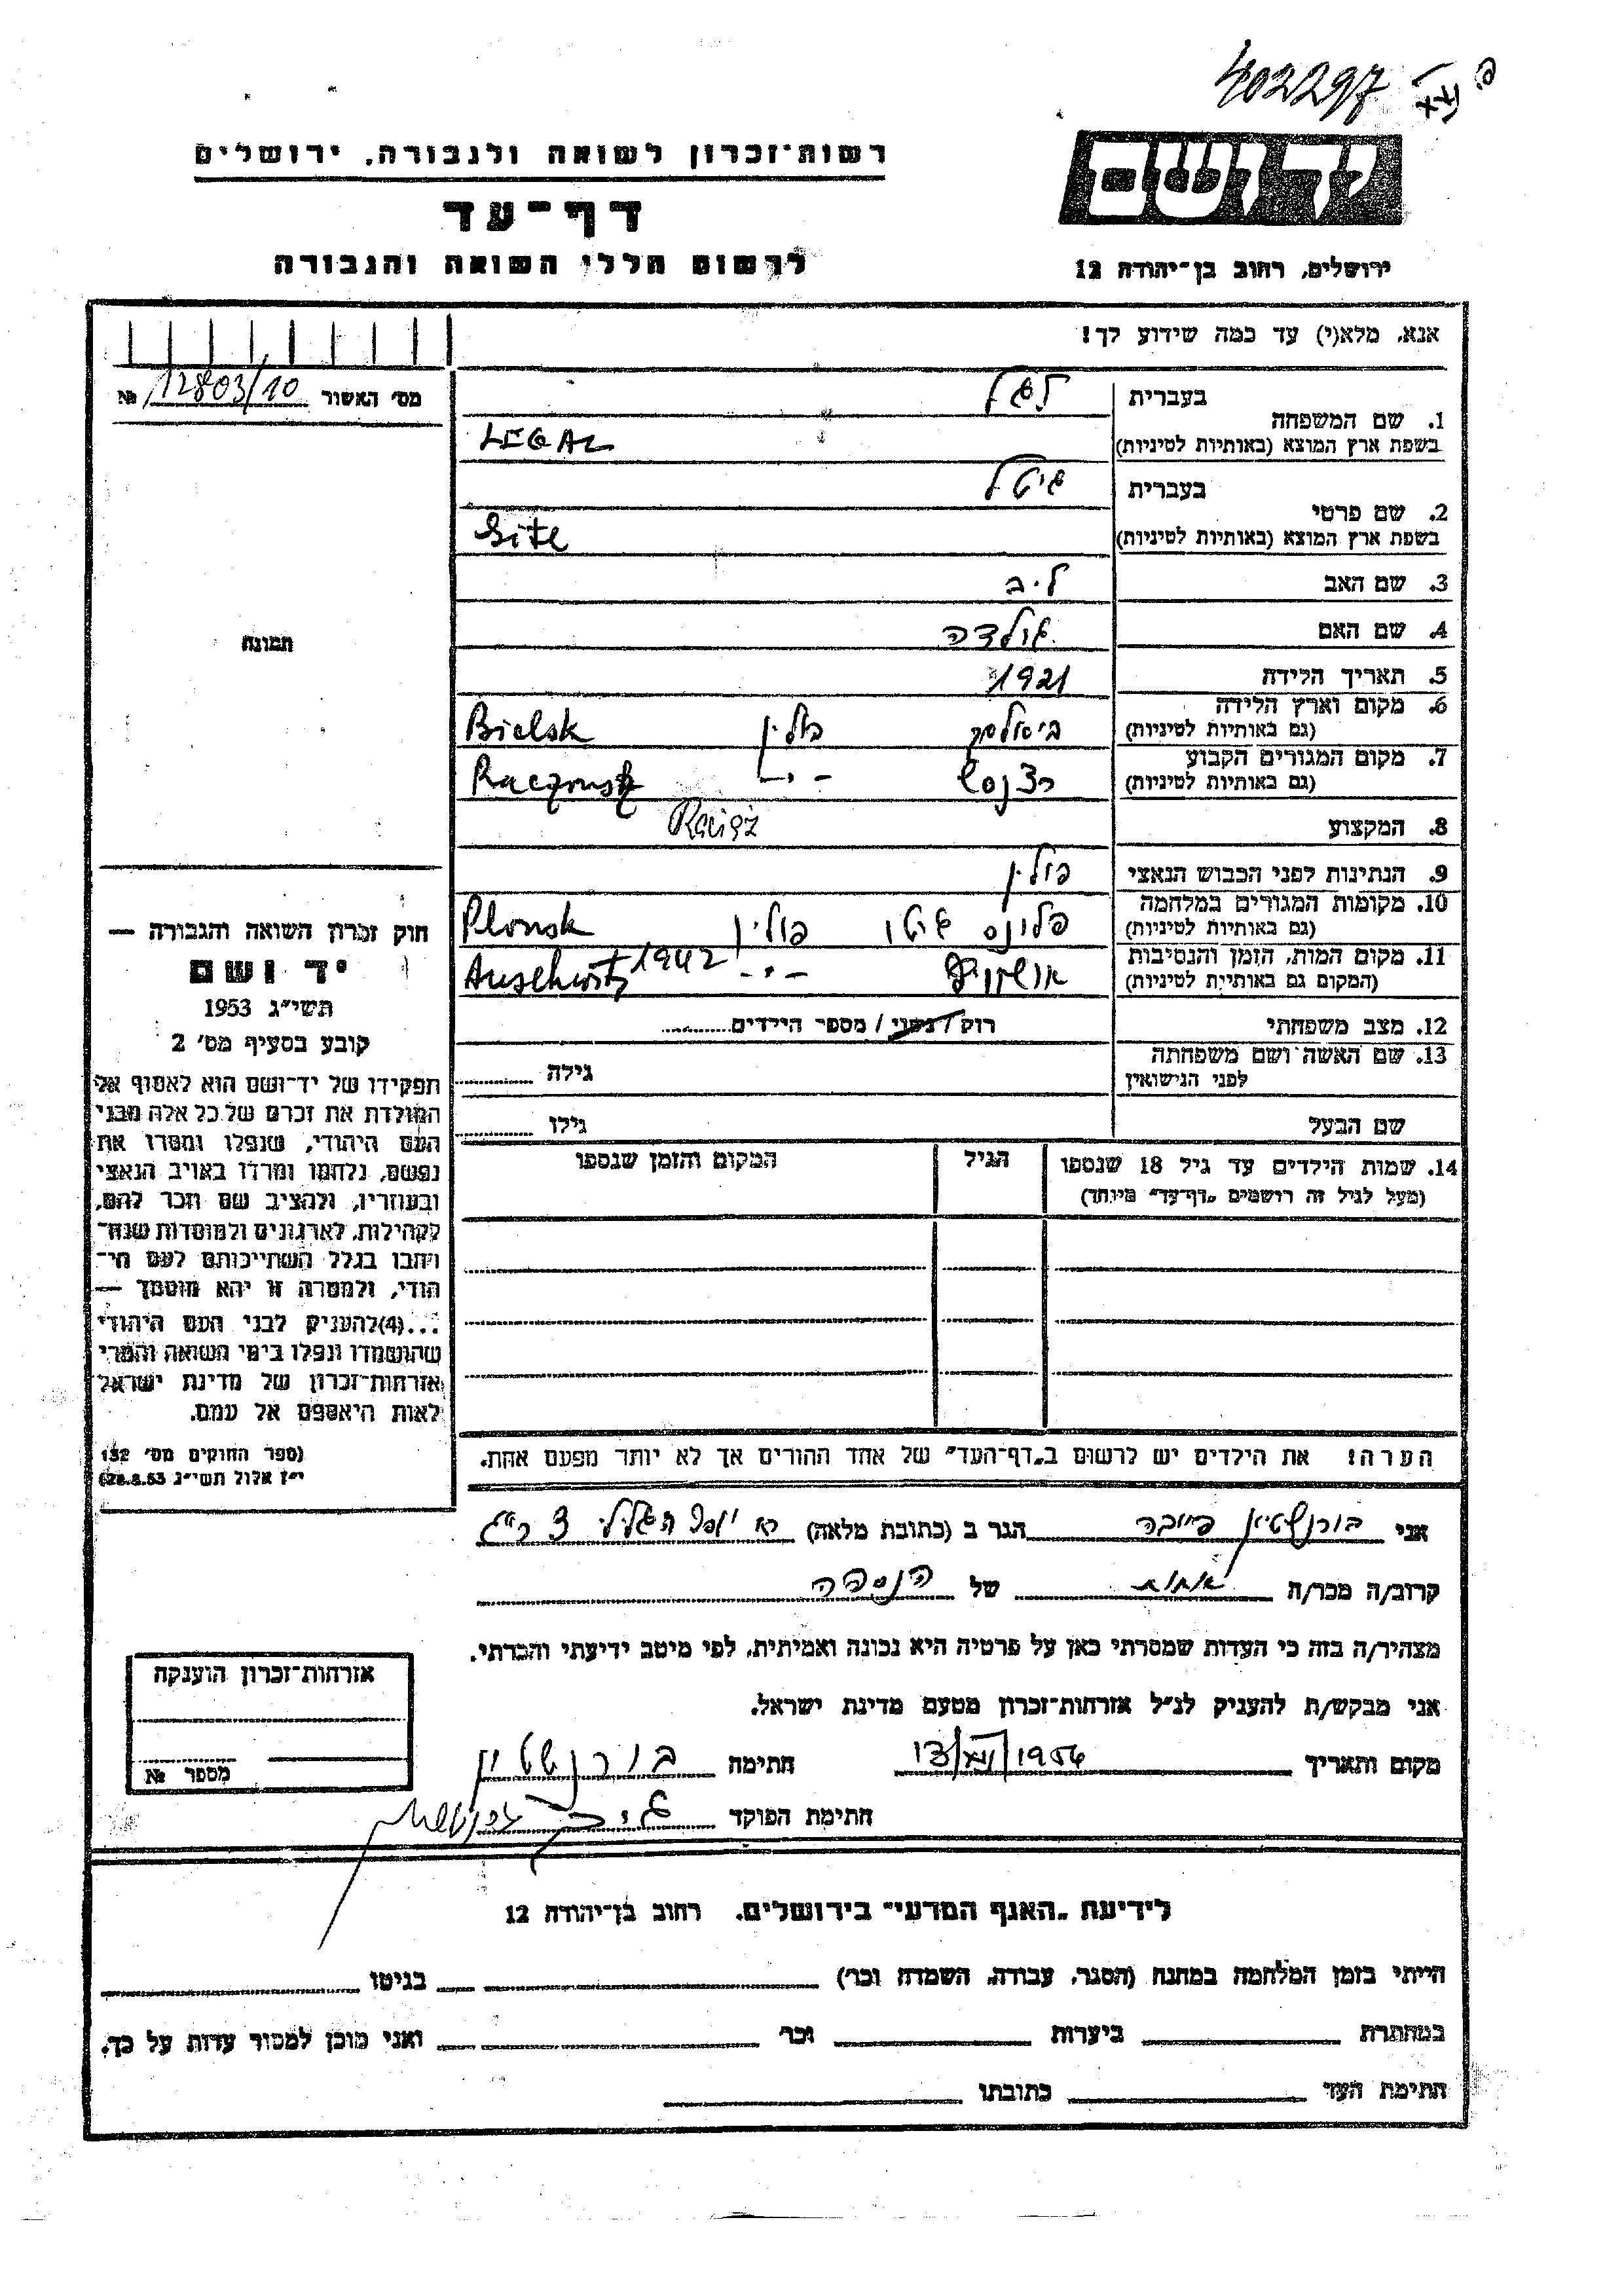 402297
רשות-זכרון לשואה ולגבורה, ירושלים
יד ושם
דף-עד
לרשום חללי השואה והגבורה
ירושלים, רחוב בן-יהודה 12
אנא, מלא(י) עד כמה שידוע לך!
מס' האשור 12803/10 №
בעברית לגל
1. שם המשפחה
בשפת ארץ המוצא (באותיות לטיניות) LEGAL
בעברית גיטל
2. שם פרטי
בשפת ארץ המוצא (באותיות לטיניות) Gitel
3. שם האב ליב
4. שם האם גולדה
5. תאריך הלידה 1921
6. מקום וארץ הלידה ביאלסק פולין Bielsk
(גם באותיות לטיניות)
7. מקום המגורים הקבוע - " - Raczonsz
(גם באותיות לטיניות)
Raciąż
8. המקצוע
9. הנתינות לפני הכבוש הנאצי פולין
10. מקומות המגורים במלחמה פלונסק גיטו פולין Plonsk
(גם באותיות לטיניות)
11. מקום המות, הזמן והנסיבות אושוויץ - " - 1942 Auschwitz
(המקום גם באותיות לטיניות)
12. מצב משפחתי רווק / נשוי / מספר הילדים
13. שם האשה ושם משפחתה גילה
לפני הנישואין
שם הבעל גילו
14. שמות הילדים עד גיל 18 שנספו הגיל המקום והזמן שנספו
(מעל לגיל זה רושמים "דף-עד" מיוחד)
הערה! את הילדים יש לרשום ב"דף-העד" של אחד ההורים אך לא יותר מפעם אחת.
תמונה
חוק זכרון השואה והגבורה —
יד ושם
תשי"ג 1953
קובע בסעיף מס' 2
תפקידו של יד-ושם הוא לאסוף אל
המולדת את זכרם של כל אלה מבני
העם היהודי, שנפלו ומסרו את
נפשם, נלחמו ומרדו באויב הנאצי
ובעוזריו, ולהציב שם וזכר להם,
לקהילות, לארגונים ולמוסדות שנח-
רבו בגלל השתייכותם לעם הי-
הודי, ולמטרה זו יהא מוסמך —
...(4)להעניק לבני העם היהודי
שהושמדו ונפלו בימי השואה והמרי
אזרחות-זכרון של מדינת ישראל
לאות היאספם אל עמם.
(ספר החוקים מס' 132
י"ז אלול תשי"ג 28.8.53)
אני בורנשטיין פייגה הגר ב (כתובת מלאה) יוסף הגלילי 3 ר"ג
קרוב/ה מכר/ה אחות של הנספה
מצהיר/ה בזה כי העדות שמסרתי כאן על פרטיה היא נכונה ואמיתית, לפי מיטב ידיעתי והכרתי.
אני מבקש/ת להעניק לנ"ל אזרחות-זכרון מטעם מדינת ישראל.
מקום ותאריך 1956 חתימה בורנשטיין
חתימת הפוקד
אזרחות-זכרון הוענקה
מספר №
לידיעת "האגף המדעי" בירושלים, רחוב בן-יהודה 12
הייתי בזמן המלחמה במחנה (הסגר, עבודה, השמדה וכו') בגיטו
במחתרת ביערות וכו' ואני מוכן למסור עדות על כך.
חתימת העד כתובתו